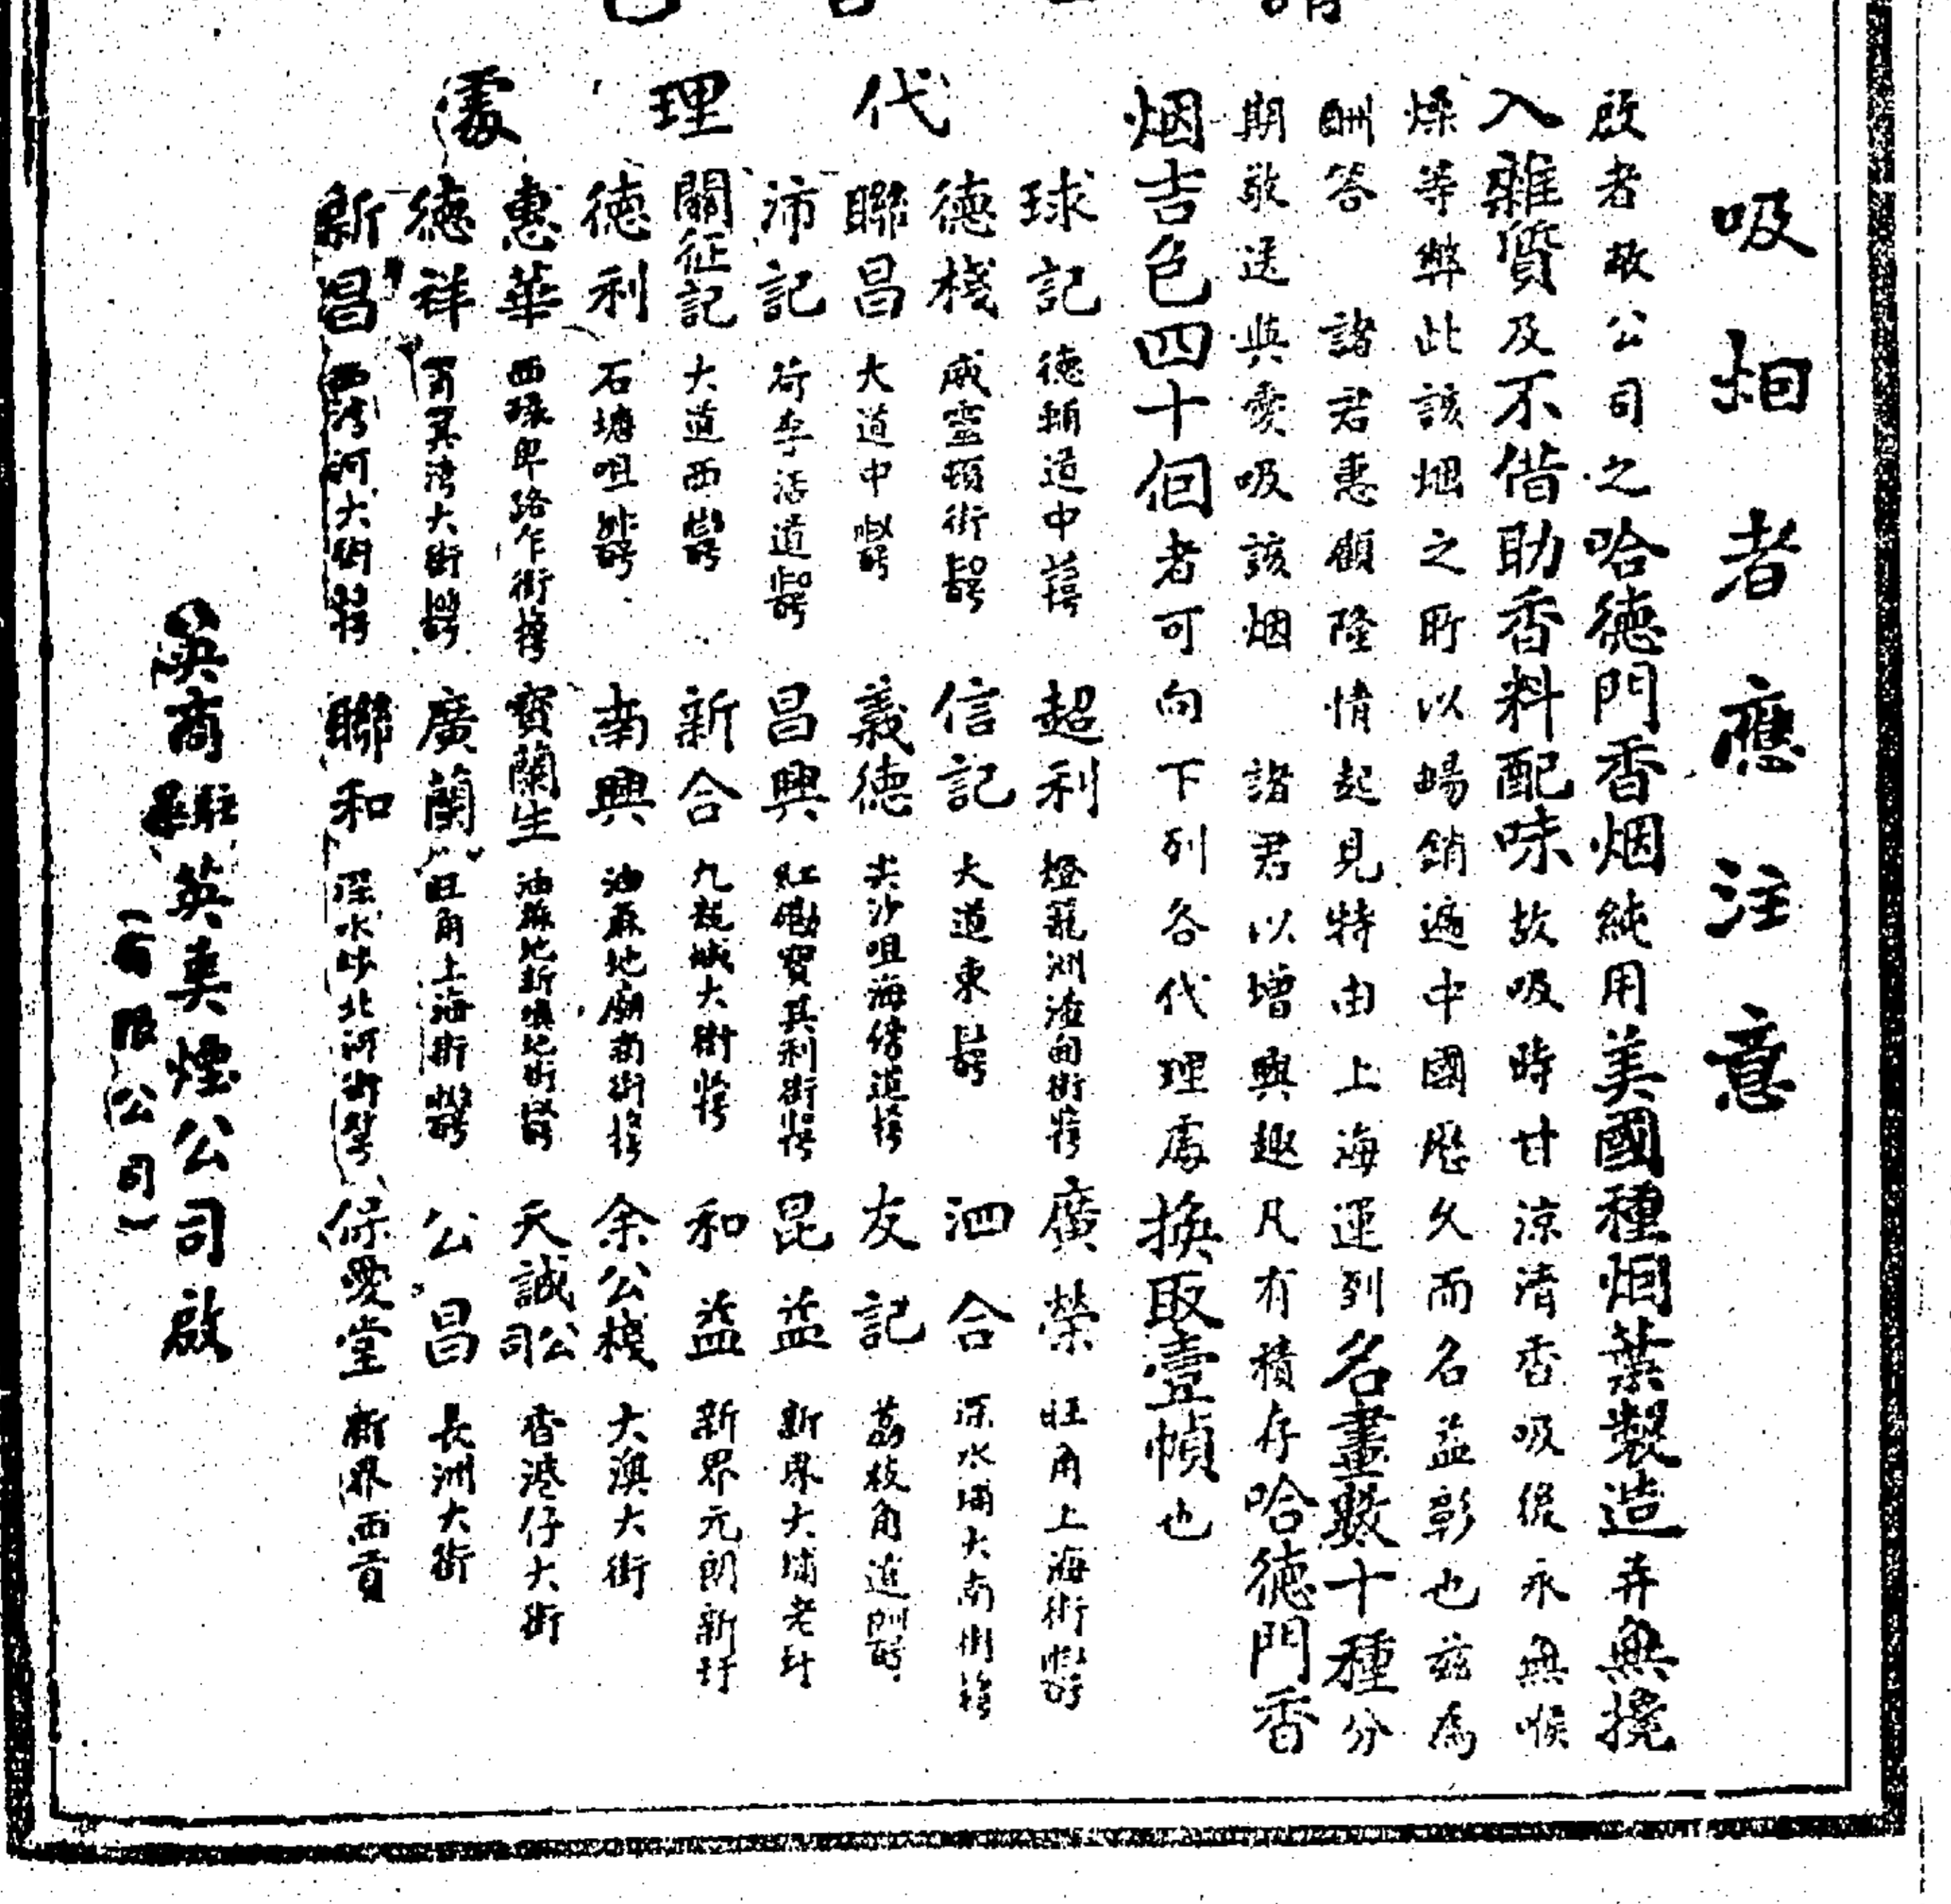 吸烟者應注意
啟者敝公司之哈德門香烟純用美國種烟葉製造弄無攙
入雜質及不借助香料配味故吸時甘涼清香吸後永無喉
燥等弊此該烟之所以暢銷遍中國歷久而名益彰也茲為
酬答 諸君惠顧隆情起見特由上海運列名畫數十種分
期敬送與愛吸該烟 諸君以增興趣凡有積存哈德門香
烟吉色四十個者可向下列各代理處換取壹幀也
代理處
球記 德輔道中 超利 燈籠洲街 廣榮 旺角上海街
德棧 威靈頓街 信記 大道東 泗合 深水埔大南街
聯昌 大道中 義德 尖沙咀海傍道 友記 荔枝角道
沛記 荷李活道 昌興 紅磡寶其利街 昆益 新界大埔老圩
關征記 大道西 新合 九龍城大街 和益 新界元朗新圩
德利 石塘咀 南興 油蔴地廟南街 余公棧 大澳大街
惠華 西環卑路乍街 寶蘭生 油蔴地新填地街 天誠公司 香港仔大街
德祥 筲箕湾大街 廣蘭 旺角上海街 公昌 長洲大街
新昌 西湾河大街 聯和 深水埗北河街 保愛堂 新界西貢
英商 駐 英美煙公司啟
(有限公司)